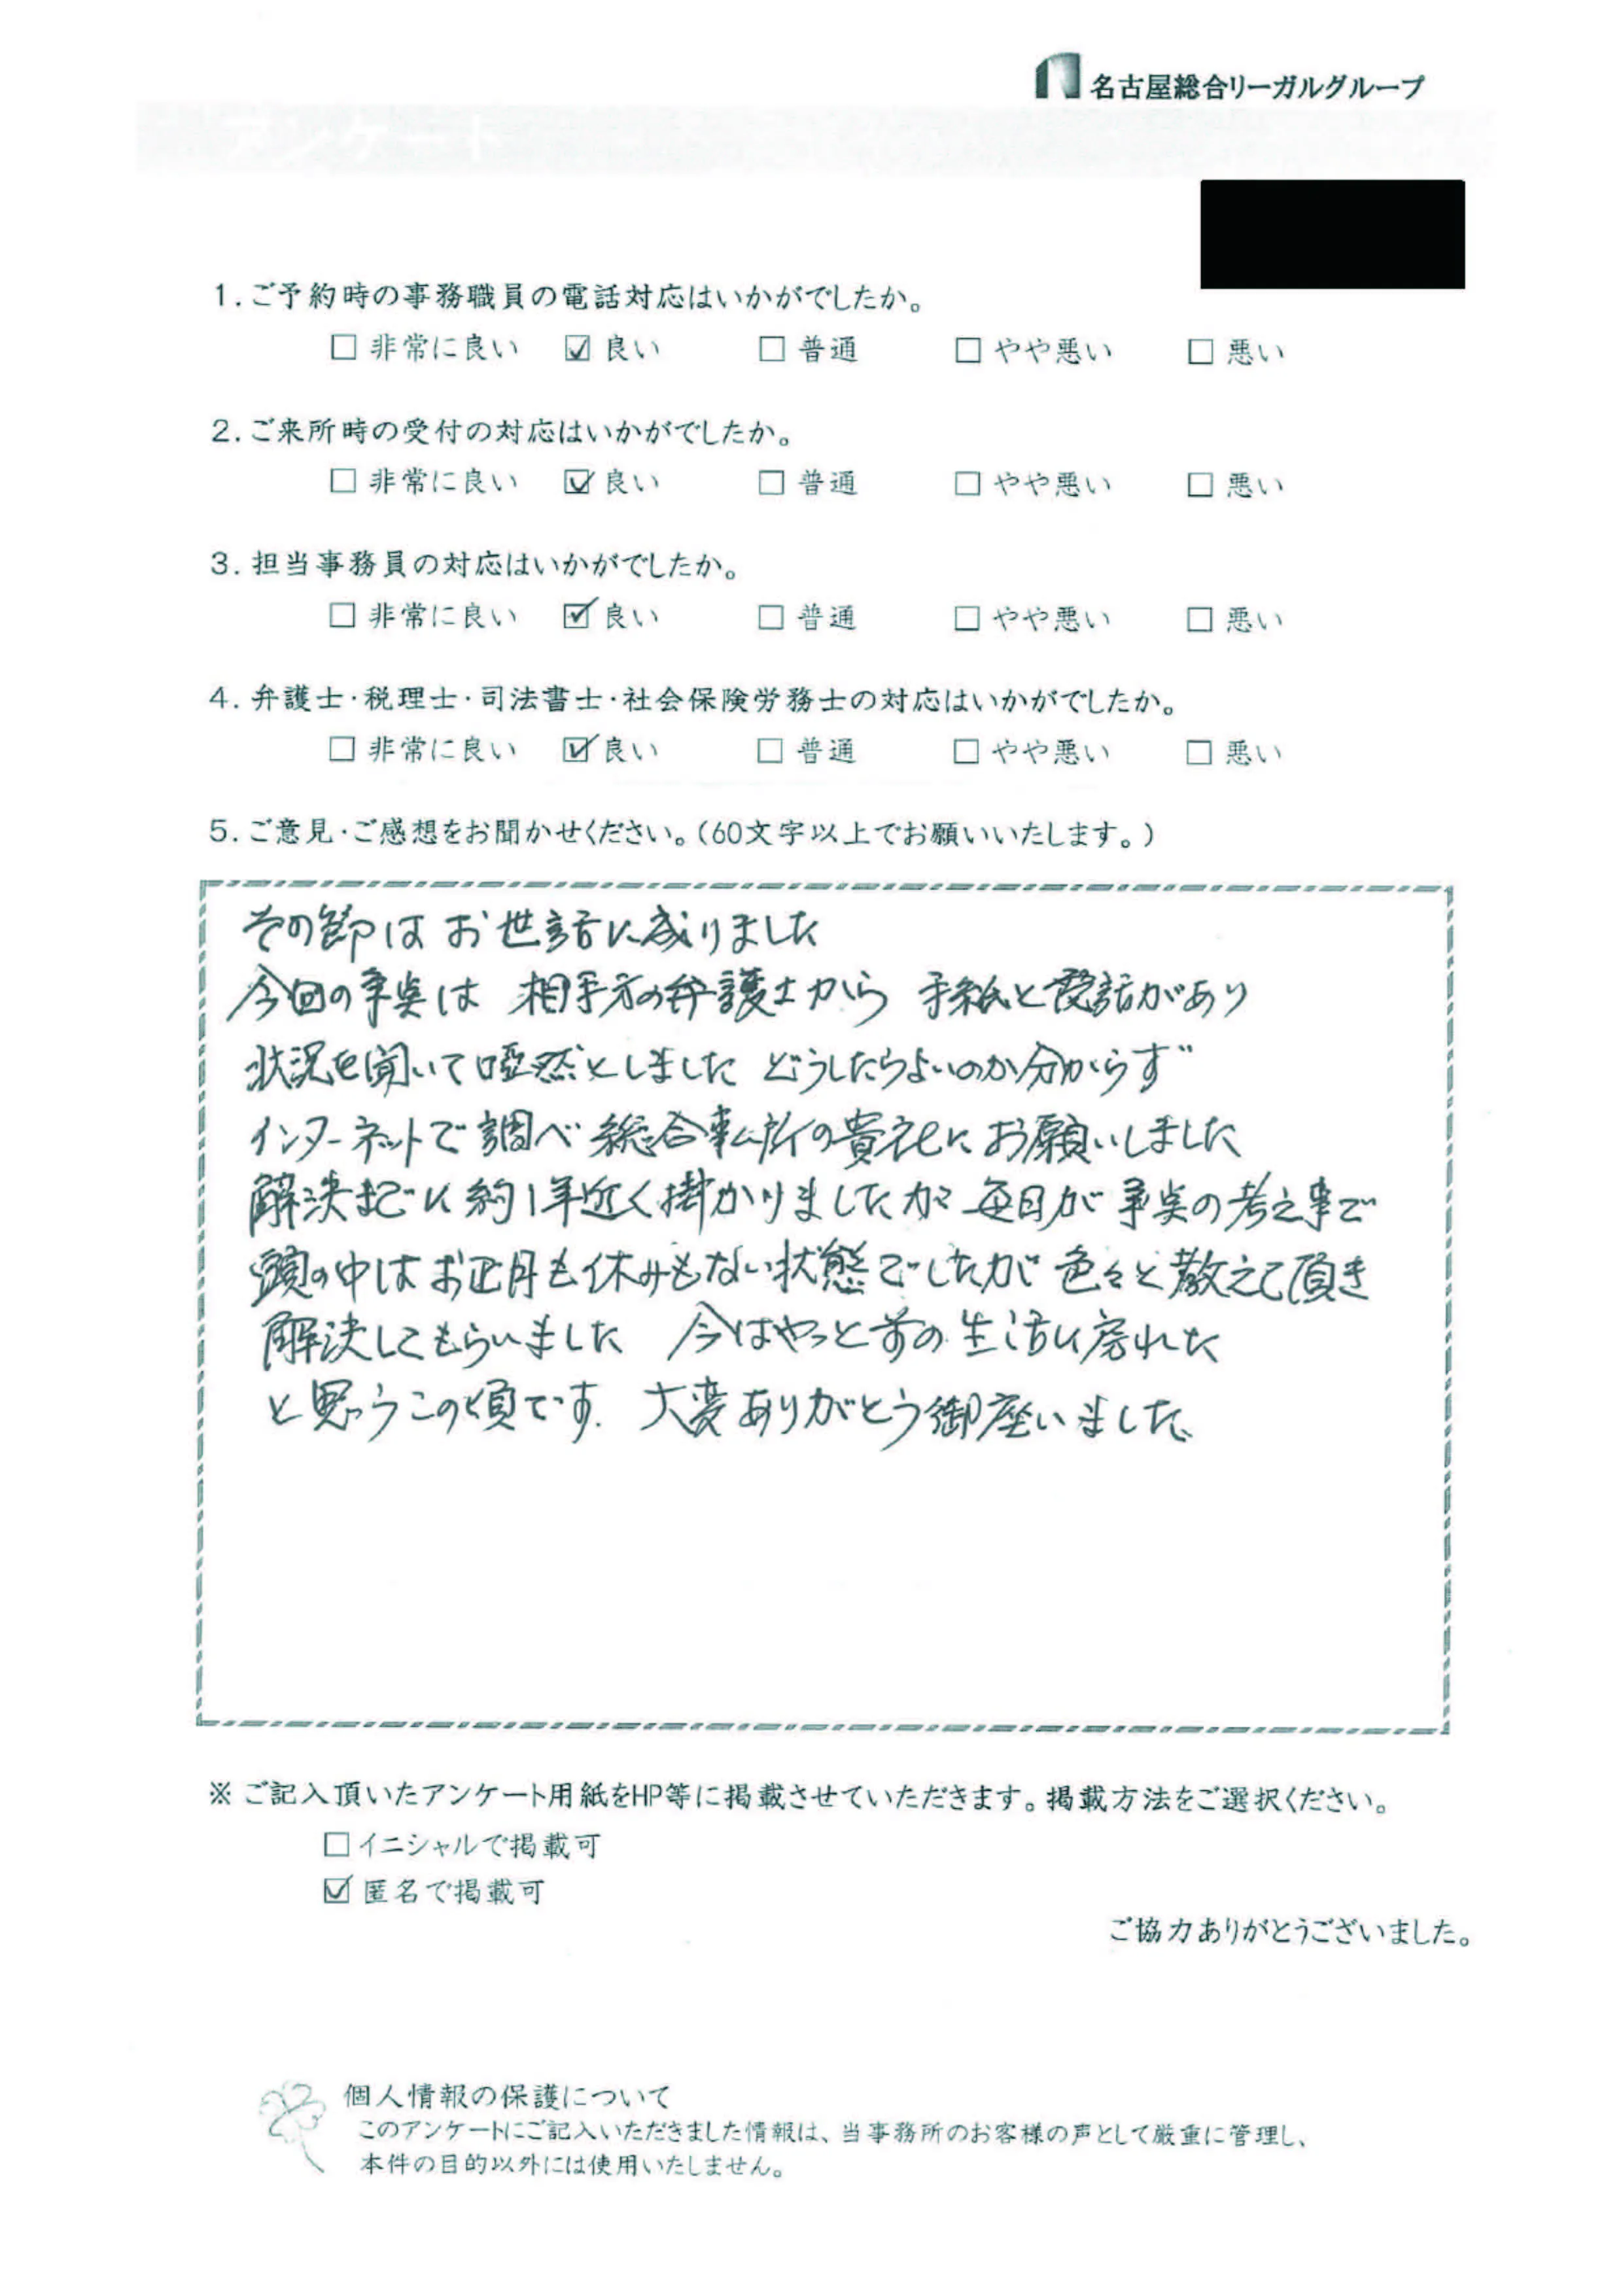 名古屋総合リーガルグループ
アンケート
1.ご予約時の事務職員の電話対応はいかがでしたか。
□ 非常に良い ☑ 良い □ 普通 □ やや悪い □ 悪い
2.ご来所時の受付の対応はいかがでしたか。
□ 非常に良い ☑ 良い □ 普通 □ やや悪い □ 悪い
3.担当事務員の対応はいかがでしたか。
□ 非常に良い ☑ 良い □ 普通 □ やや悪い □ 悪い
4.弁護士・税理士・司法書士・社会保険労務士の対応はいかがでしたか。
□ 非常に良い ☑ 良い □ 普通 □ やや悪い □ 悪い
5.ご意見・ご感想をお聞かせください。(60文字以上でお願いいたします。)
その節は お世話に成りました
今回の事案は 相手方の弁護士から 手紙と電話があり
状況を聞いて唖然としました どうしたらよいのか分からず
インターネットで調べ 総合事ム所の貴社に お願いしました
解決までに約1年近く掛かりましたが 毎日が 事案の考え事で
頭の中はお正月も休みもない状態でしたが 色々と教えて頂き
解決してもらいました 今はやっと前の生活に戻れた
と思うこの頃です. 大変ありがとう御座いました。
※ ご記入頂いたアンケート用紙をHP等に掲載させていただきます。掲載方法をご選択ください。
□ イニシャルで掲載可
☑ 匿名で掲載可
ご協力ありがとうございました。
個人情報の保護について
このアンケートにご記入いただきました情報は、当事務所のお客様の声として厳重に管理し、
本件の目的以外には使用いたしません。